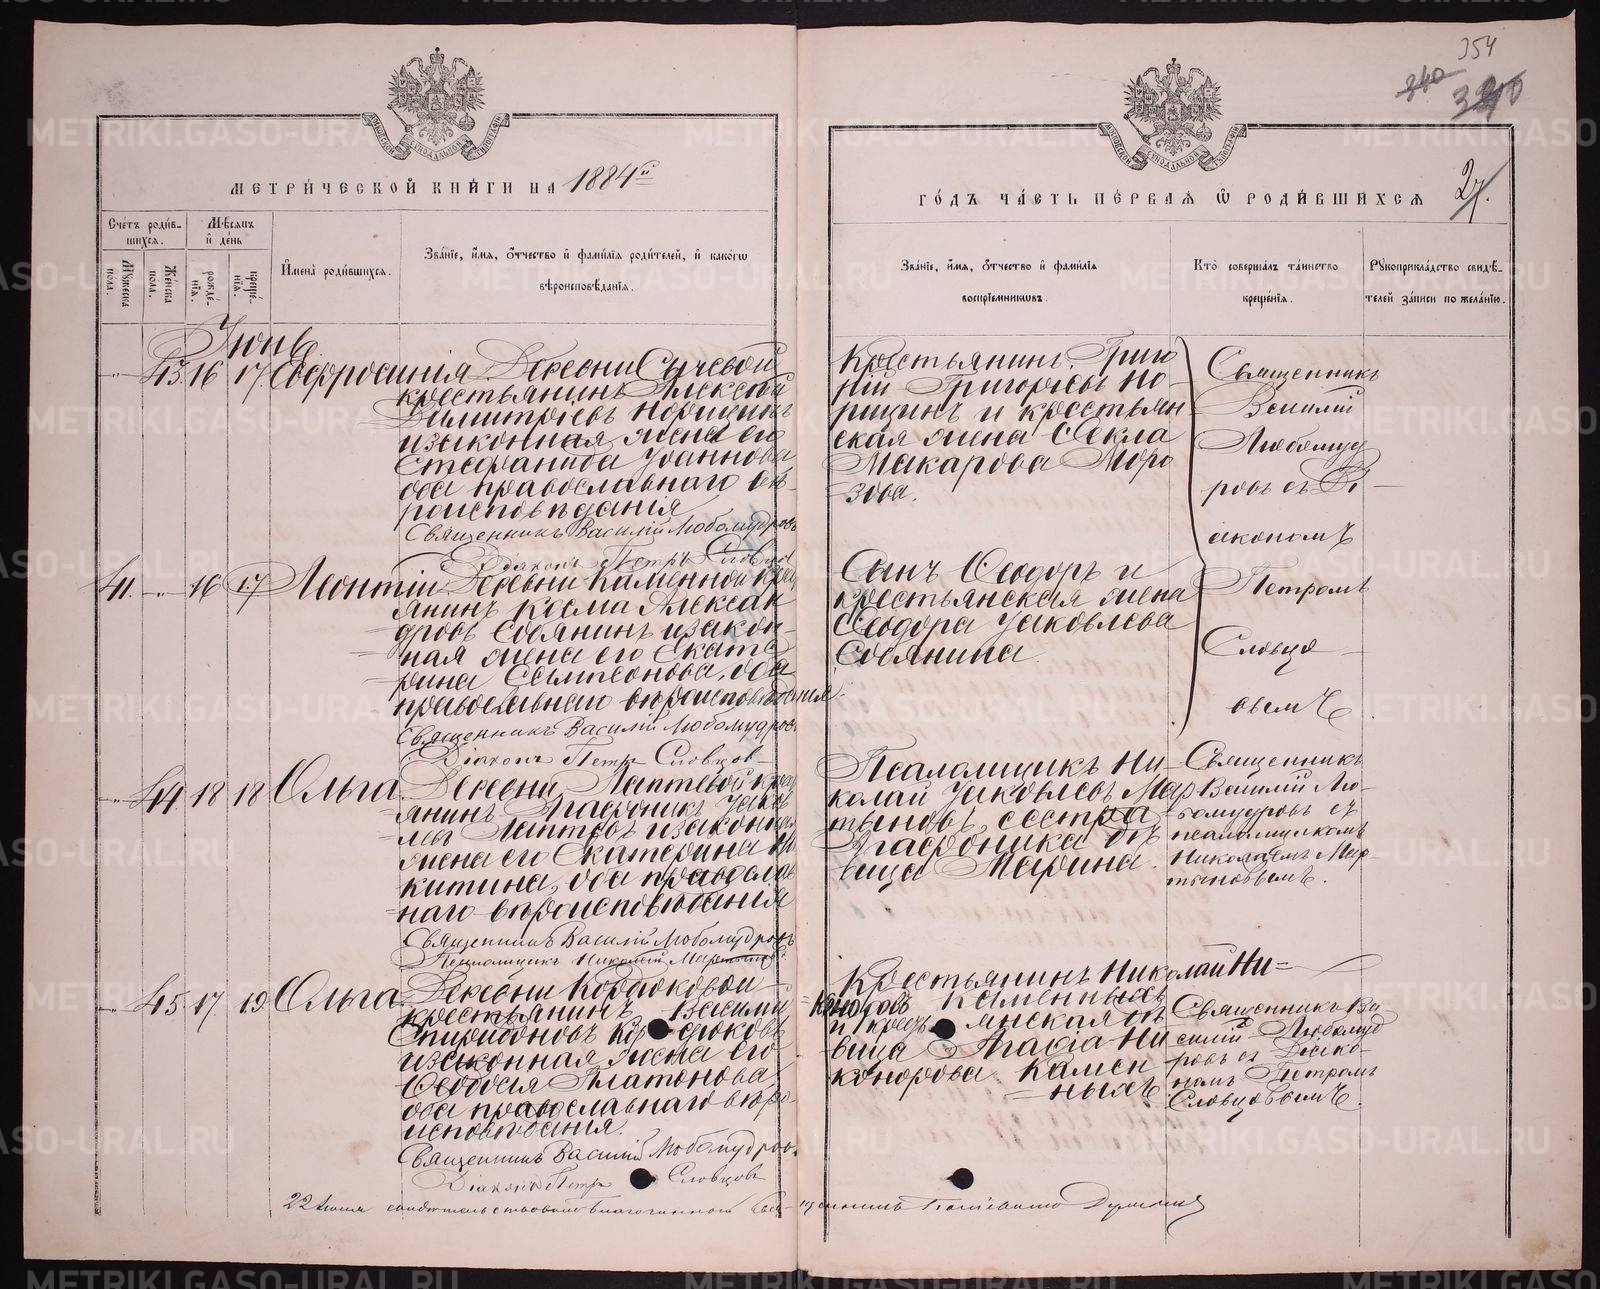 354
340
МЕТРИ́ЧЕСКОЙ КНИ́ГИ НА 1884й
ГО́ДЪ ЧА́СТЬ ПЕ́РВАѦ Ѿ РОДИ́ВШИХСѦ
27.
Счетъ роди́вшихсѧ.
Мѣ́сѧцъ и҆ де́нь
Мꙋ́жеска пола.
Же́нска пола.
рожде́нїѧ.
креще́нїѧ.
И҆мена̀ роди́вшихсѧ.
Зва́нїе, и҆́мѧ, ѻ҆́тчество и҆ фамі́лїѧ роди́телей, и҆ како́гѡ
вѣроисповѣ́данїѧ.
Зва́нїе, и҆́мѧ, ѻ҆́тчество и҆ фамі́лїѧ
воспрїе́мникѡвъ.
Кто̀ соверша́лъ та́инство
креще́нїѧ.
Рꙋкоприкла́дство свидѣ́телей за́писи по жела́нїю.
Іюнь
43. 16 17. Евфросинія
Деревни Сычевой
крестьянинъ Алексѣй
Димитріевъ Норицинъ
и законная жена его
Стефанида Іоаннова
оба православнаго вѣ-
роисповѣданія
Священникъ Василій Любомудровъ
Діаконъ Петръ Словцов
Крестьянинъ Григо
рій Григорьевъ Но-
рицинъ и крестьян
ская жена Ѳекла
Макарова Моро
зова.
Священникъ
Василій
Любомуд
ровъ съ Ді
акономъ
Петромъ
Словцо
вымъ
41. 16 17 Леонтій
Деревни Каменной крес
янинъ Косма Алексан
дровъ Собянинъ и закон-
ная жена его Екате
рина Симеонова, оба
православнаго вѣроисповѣданія.
Священникъ Василій Любомудров
Діаконъ Петръ Словцов
Сынъ Ѳеодоръ и
крестьянская жена
Ѳеодора Іаковлева
Собянина
44. 18 18 Ольга.
Деревни Лаптевой крес
янинъ Агафоникъ Іаков
левъ Лаптевъ и законная
жена его Екатерина Ни
китина, оба православ
наго вѣроисповѣданія
Священникъ Василій Любомудровъ
Псаломщикъ Николай Мартыновъ
Псаломщикъ Ни-
колай Іаковлевъ Мар
тыновъ, сестра
Агафоника дѣ
вица Марина.
Священникъ
Василій Лю-
бомудровъ съ
псаломщикомъ
Николаемъ Мар
тыновымъ.
45. 17. 19 Ольга.
Деревни
крестьянинъ Василій
Спиридоновъ
и законная жена его
Ѳеодосія Платонова
оба православнаго вѣро-
исповѣданія.
Священникъ Василій Любомудров
Діаконъ Петръ Словцовъ
Крестьянинъ Николай Ни-
каноровъ Каменныхъ
и крестьянская дѣ
вица Агафія Ни
конорова Камен
ныхъ
Священникъ Ва
силій Любомуд
ровъ съ Діако-
номъ Петромъ
Словцовымъ.
22 Іюня свидѣтельствовалъ благочинный Священникъ